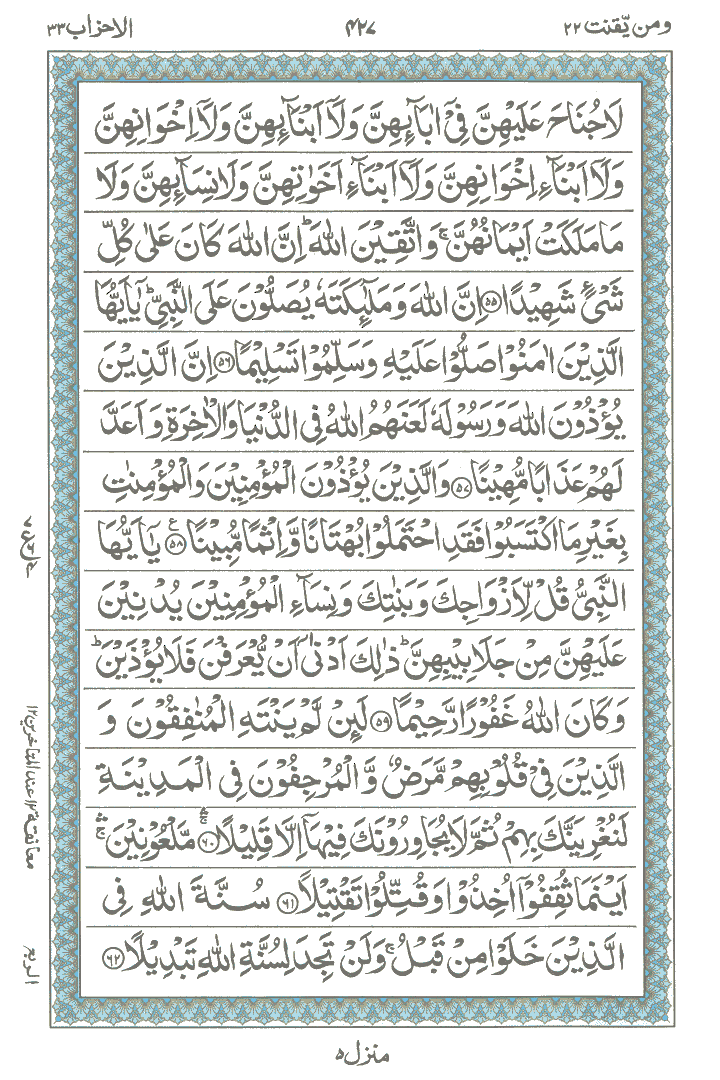 ومن يّقنت ٢٢ ٤٢٧ الاحزاب ٣٣
لَا جُنَاحَ عَلَيْهِنَّ فِيْۤ اٰبَآئِهِنَّ وَلَاۤ اَبْنَآئِهِنَّ وَلَاۤ اِخْوَانِهِنَّ
وَلَاۤ اَبْنَآءِ اِخْوَانِهِنَّ وَلَاۤ اَبْنَآءِ اَخَوٰتِهِنَّ وَلَا نِسَآئِهِنَّ وَلَا
مَا مَلَكَتْ اَيْمَانُهُنَّ ۚ وَاتَّقِيْنَ اللّٰهَ ؕ اِنَّ اللّٰهَ كَانَ عَلٰى كُلِّ
شَيْءٍ شَهِيْدًا ﴿٥٥﴾ اِنَّ اللّٰهَ وَمَلٰٓئِكَتَهٗ يُصَلُّوْنَ عَلَى النَّبِيِّ ؕ يٰۤاَيُّهَا
الَّذِيْنَ اٰمَنُوْا صَلُّوْا عَلَيْهِ وَسَلِّمُوْا تَسْلِيْمًا ﴿٥٦﴾ اِنَّ الَّذِيْنَ
يُؤْذُوْنَ اللّٰهَ وَرَسُوْلَهٗ لَعَنَهُمُ اللّٰهُ فِي الدُّنْيَا وَالْاٰخِرَةِ وَاَعَدَّ
لَهُمْ عَذَابًا مُّهِيْنًا ﴿٥٧﴾ وَالَّذِيْنَ يُؤْذُوْنَ الْمُؤْمِنِيْنَ وَالْمُؤْمِنٰتِ
بِغَيْرِ مَا اكْتَسَبُوْا فَقَدِ احْتَمَلُوْا بُهْتَانًا وَّاِثْمًا مُّبِيْنًا ﴿٥٨﴾ ع يٰۤاَيُّهَا
النَّبِيُّ قُلْ لِّاَزْوَاجِكَ وَبَنٰتِكَ وَنِسَآءِ الْمُؤْمِنِيْنَ يُدْنِيْنَ
عَلَيْهِنَّ مِنْ جَلَابِيْبِهِنَّ ؕ ذٰلِكَ اَدْنٰۤى اَنْ يُّعْرَفْنَ فَلَا يُؤْذَيْنَ ؕ
وَكَانَ اللّٰهُ غَفُوْرًا رَّحِيْمًا ﴿٥٩﴾ لَئِنْ لَّمْ يَنْتَهِ الْمُنٰفِقُوْنَ وَ
الَّذِيْنَ فِيْ قُلُوْبِهِمْ مَّرَضٌ وَّالْمُرْجِفُوْنَ فِي الْمَدِيْنَةِ
لَنُغْرِيَنَّكَ بِهِمْ ثُمَّ لَا يُجَاوِرُوْنَكَ فِيْهَاۤ اِلَّا قَلِيْلًا ﴿٦٠﴾ مَّلْعُوْنِيْنَ ۛ
اَيْنَمَا ثُقِفُوْۤا اُخِذُوْا وَقُتِّلُوْا تَقْتِيْلًا ﴿٦١﴾ سُنَّةَ اللّٰهِ فِي
الَّذِيْنَ خَلَوْا مِنْ قَبْلُ ۚ وَلَنْ تَجِدَ لِسُنَّةِ اللّٰهِ تَبْدِيْلًا ﴿٦٢﴾
معانقة ١٢ عند المتاخرين ١٢
الربع
منزل ٥